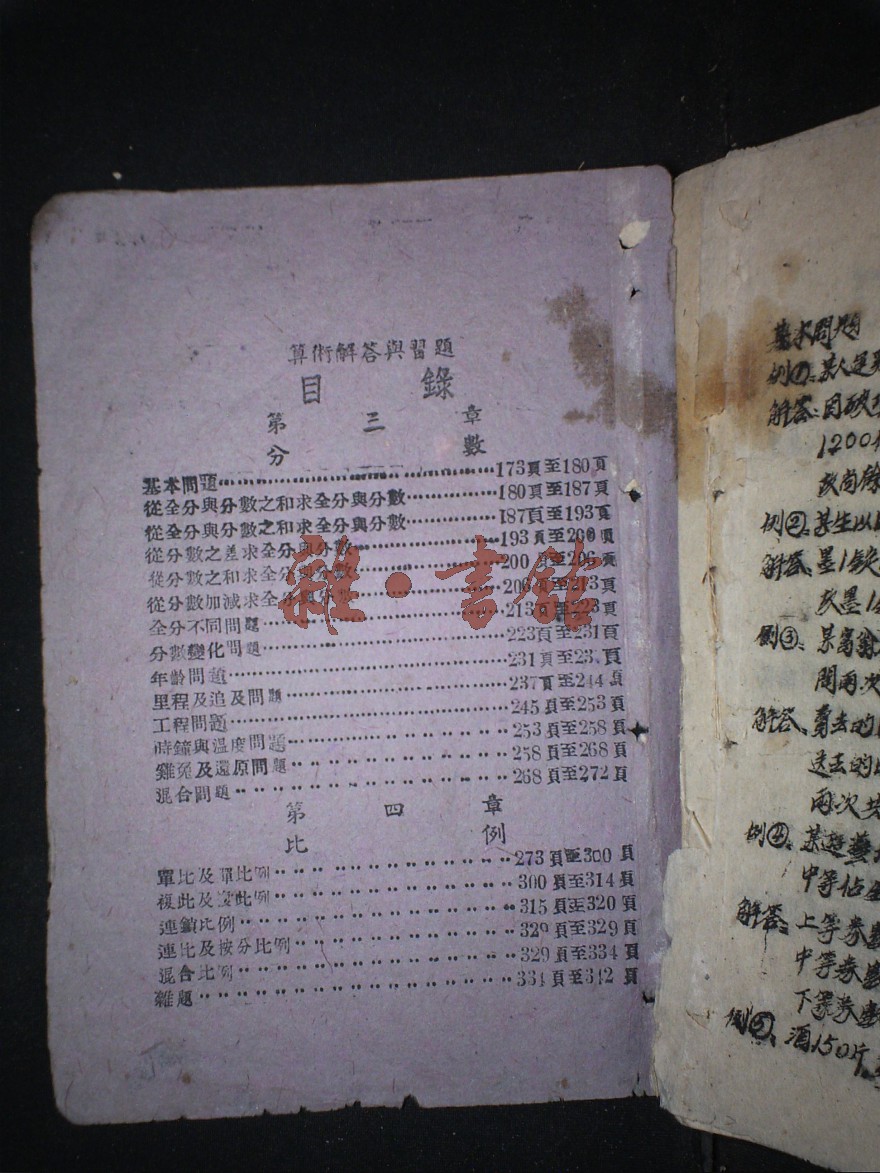 算術解答與習題
目錄
第三章
分數
基本問題……173頁至180頁
從全分與分數之和求全分與分數……180頁至187頁
從全分與分數之和求全分與分數……187頁至193頁
從分數之差求全分與分數……193頁至200頁
從分數之和求全分與分數……200頁至206頁
從分數加減求全分與分數……206頁至213頁
全分不同問題……213頁至223頁
分數變化問題……223頁至231頁
年齡問題……231頁至23頁
里程及追及問題……237頁至244頁
工程問題……245頁至253頁
時鐘與溫度問題……253頁至258頁
雞兔及還原問題……258頁至268頁
混合問題……268頁至272頁
第四章
比例
單比及單比例……273頁至300頁
複比及複比例……300頁至314頁
連鎖比例……315頁至320頁
連比及按分比例……320頁至329頁
混合比例……329頁至334頁
雜題……334頁至342頁
雜·書館
基本問題
例①、某人運
解答：因破
1200
故尚餘
例②、某生以
解答、墨1錠
故墨1
例③、某富翁
問兩次
解答、
送去的
兩次共
例④、某遊藝
中等佔全
解答、上等券數
中等券數
下等券數
例⑤、酒150斤